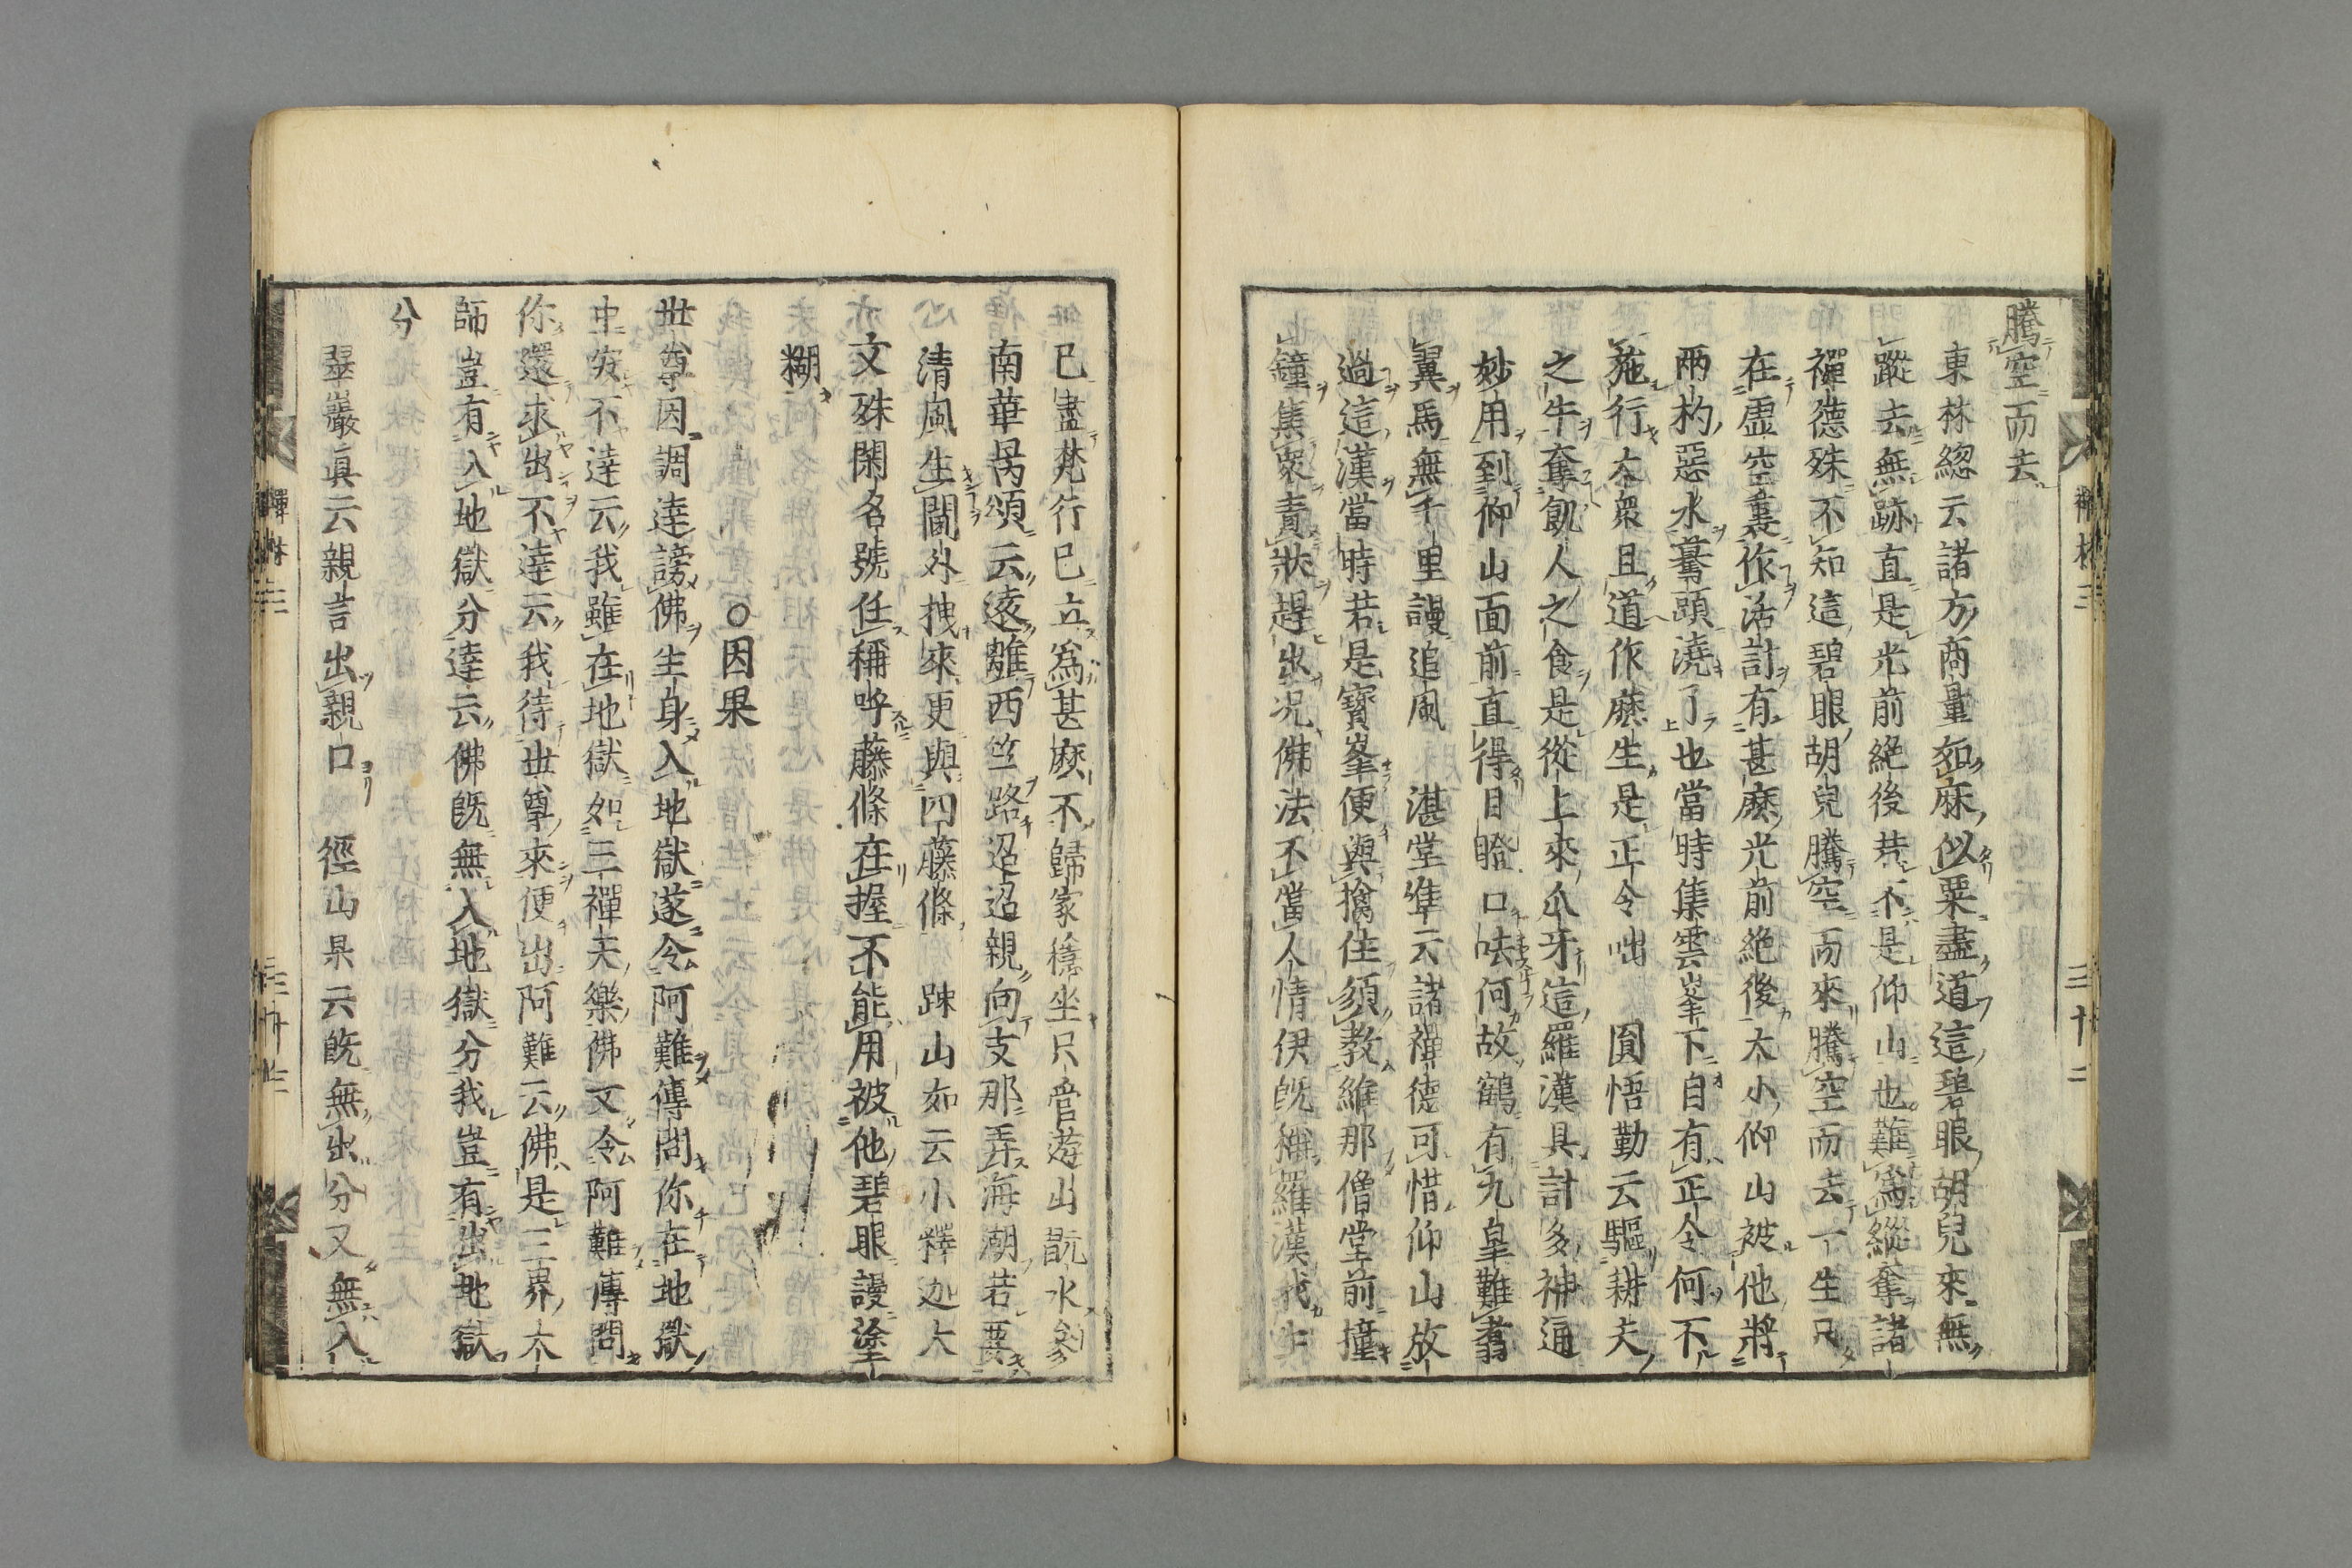 騰空而去
東林緫云諸方商量如麻似粟盡道這碧眼胡兒來無
蹤去無跡直是光前絶後若不是仰山也難爲縱奪諸
禪德殊不知這碧眼胡兒騰空而來騰空而去一生只
在虛空裏作活計有甚麽光前絶後大小仰山被他將
兩杓惡水驀頭澆了也當時集雲峯下自有正令何不
施行大衆且道作麽生是正令咄 圓悟勤云驅耕夫
之牛奪飢人之食是從上來爪牙這羅漢具計多神通
妙用到仰山面前直得目瞪口呿何故鶴有九皐難翥
翼馬無千里謾追風 湛堂凖云諸禪德可惜仰山放
過這漢當時若是寳峯便與擒住須教維那僧堂前撞
鐘集衆責狀趕出况佛法不當人情伊旣稱羅漢我生
已盡梵行已立爲甚麽不歸家穩坐只管遊山翫水
南華昺頌云遠離西竺路迢迢親向支那弄海潮若要
清風生閫外拽來更與四藤條 踈山如云小釋迦大
文殊閑名號任稱呼藤條在握不能用被他碧眼謾塗
糊
○因果
世尊因調達謗佛生身入地獄遂令阿難傳問你在地獄
中安不達云我雖在地獄如三禪天樂佛又令阿難傳問
你還求出不達云我待世尊來便出阿難云佛是三界大
師豈有入地獄分達云佛旣無入地獄分我豈有出地獄
分
翠巖眞云親言出親口 徑山杲云旣無出分又無入
禪林三
三十二